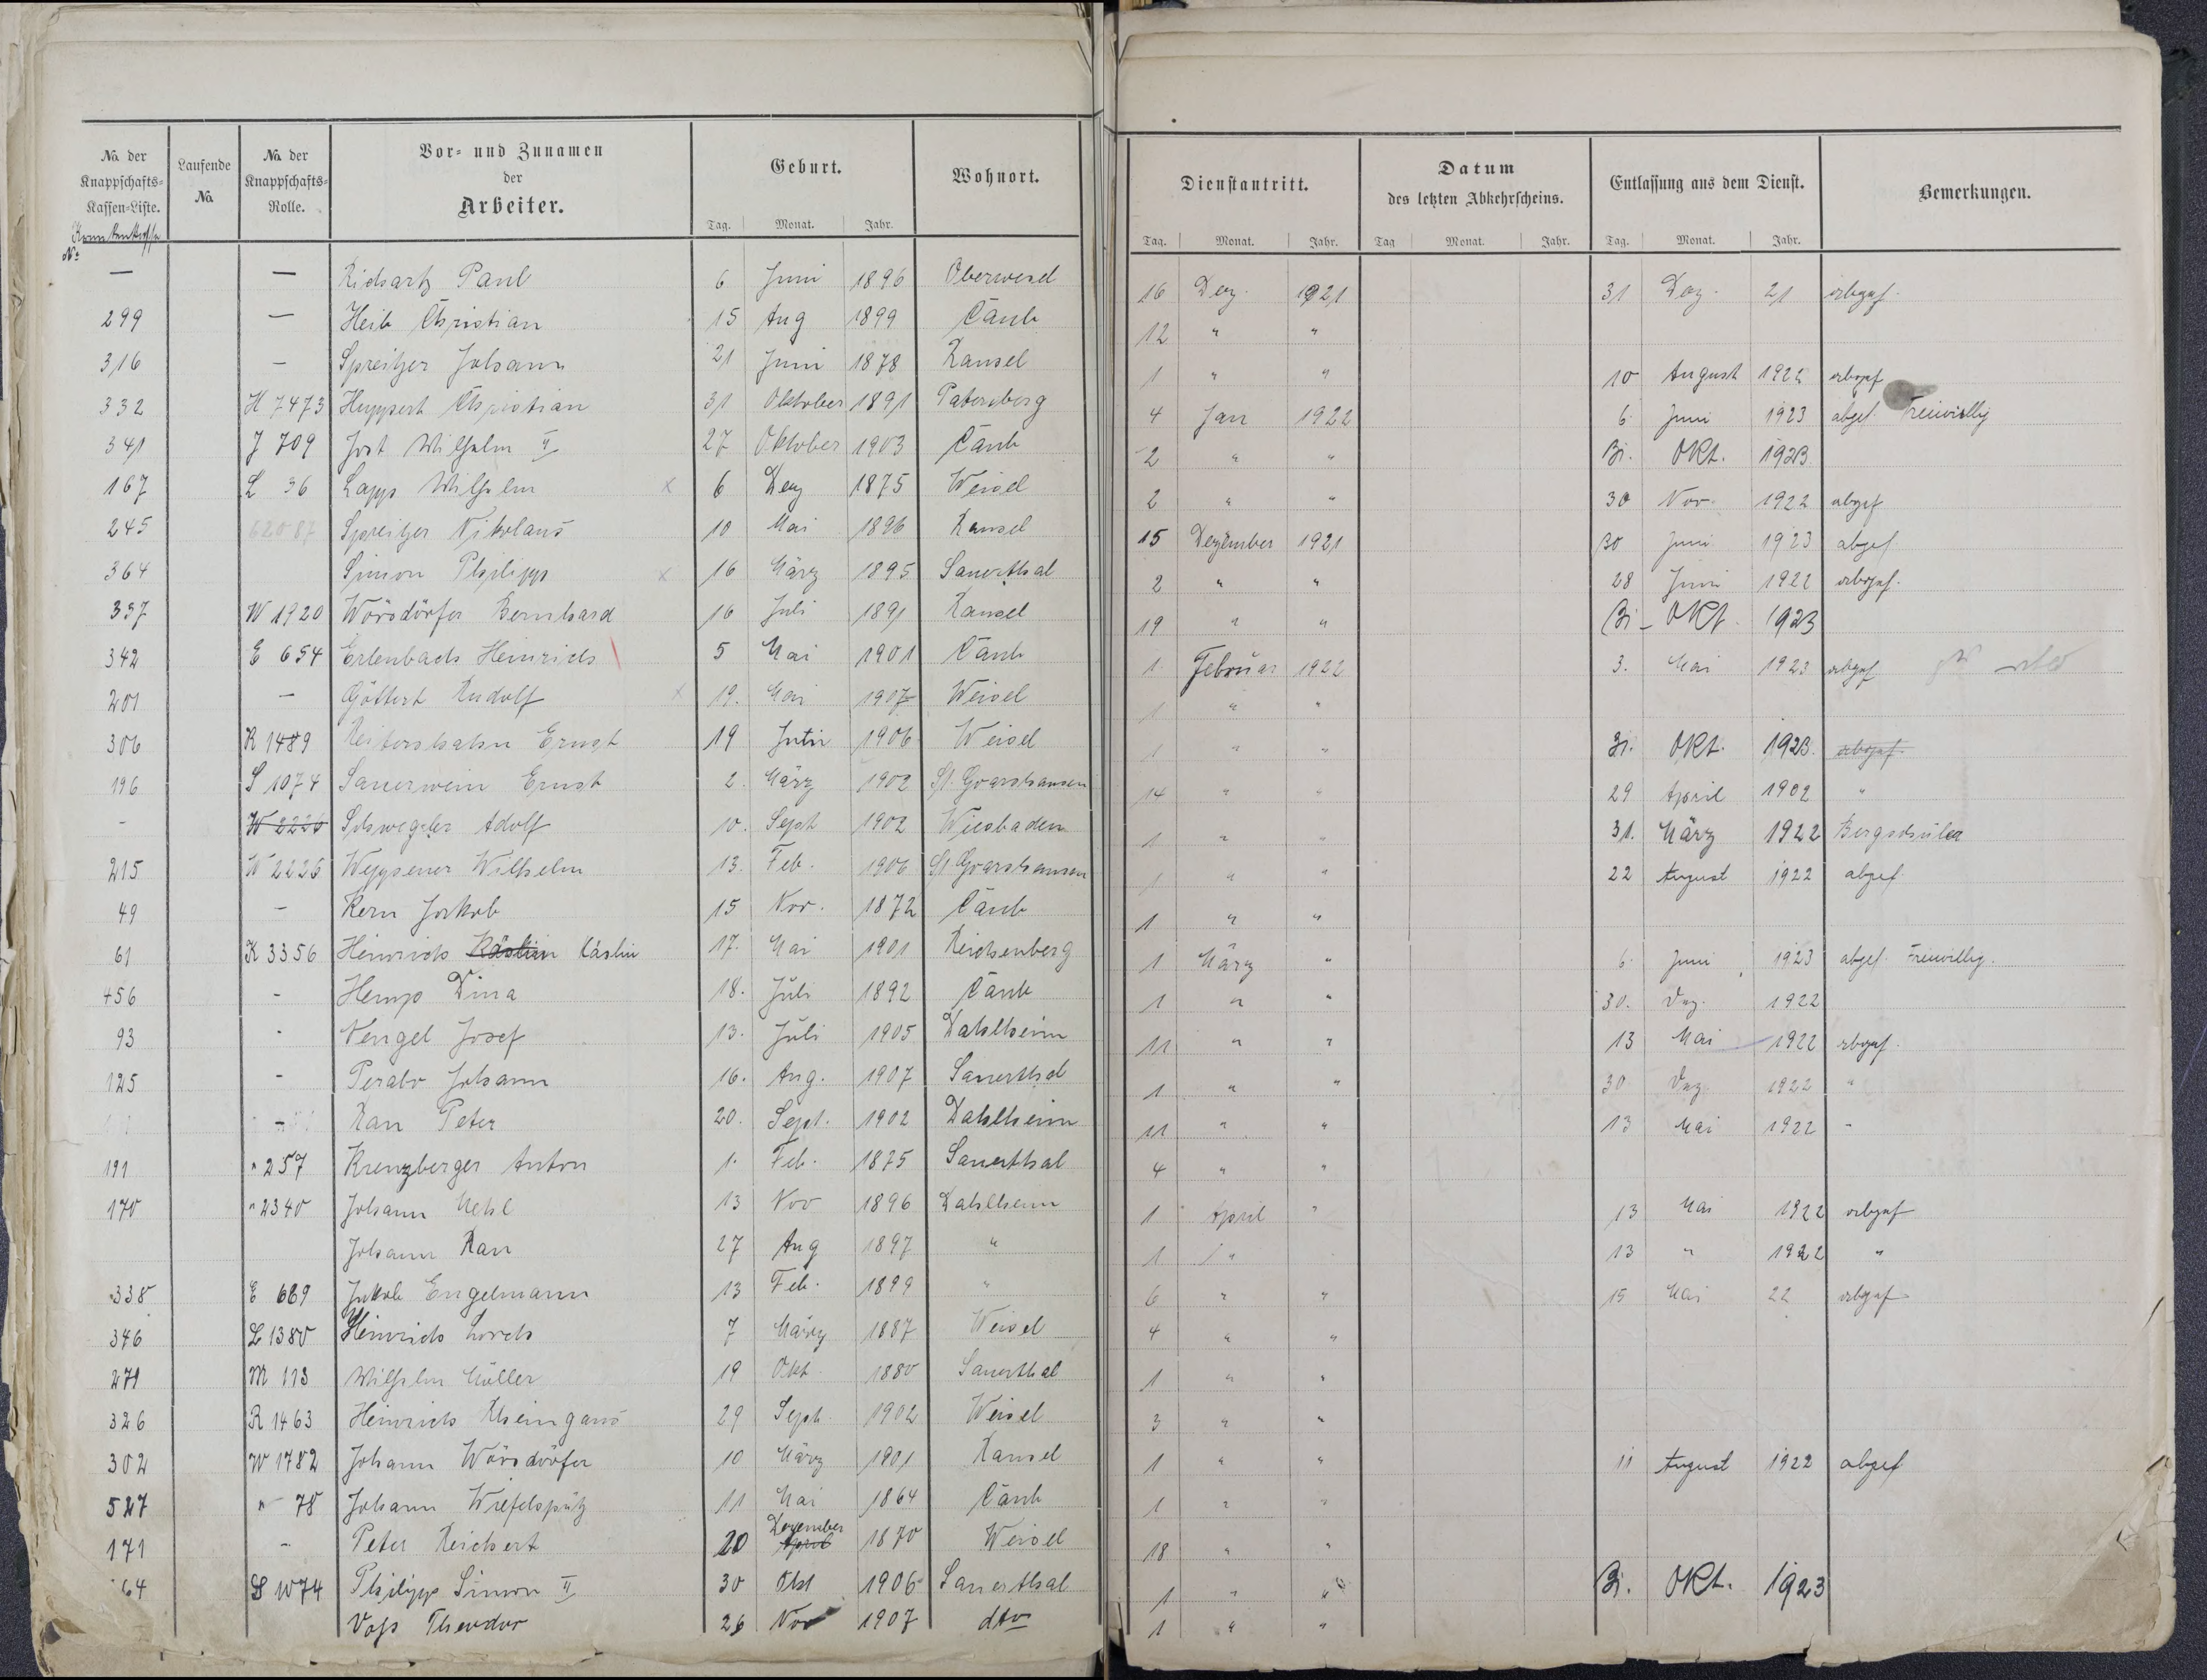 No. der Knappschafts-Kassen-Liste. Krankenkasse No. | Laufende No. | No. der Knappschafts-Rolle. | Vor- und Zunamen der Arbeiter. | Geburt. Tag. Monat. Jahr. | Wohnort. | Dienstantritt. Tag. Monat. Jahr. | Datum des letzten Abkehrscheins. Tag Monat. Jahr. | Entlassung aus dem Dienst. Tag. Monat. Jahr. | Bemerkungen.
— — Richartz Paul 6 Juni 1896 Oberwesel 16 Dez. 1921 31 Dez. 21 abgef.
299 — Heib Christian 15 Aug 1899 Caub 12 " "
316 — Spreitzer Johann 21 Juni 1878 Ransel 1 " " 10 August 1922 abgef
332 H 7473 Huppert Christian 31 Oktober 1891 Patersberg 4 Jan 1922 6 Juni 1923 abgef. Freiwillig
341 J 709 Jost Wilhelm II 27 Oktober 1903 Caub 2 " " 31. Okt. 1923
167 L 36 Lapp Wilhelm x 6 Dez 1875 Weisel 2 " " 30 Nov. 1922 abgef
245 62087 Spreitzer Nikolaus 10 Mai 1896 Ransel 15 Dezember 1921 30 Juni 1923 abgef.
364 Simon Philipp x 16 März 1895 Sauerthal 2 " " 28 Juni 1922 abgef.
337 W 1920 Wörsdörfer Bernhard 16 Juli 1891 Ransel 19 " " 31 - Okt. 1923
342 E 654 Erlenbach Heinrich 5 Mai 1901 Caub 1 Februar 1922 3. Mai 1923 abgef
201 — Göttert Rudolf x 19. Mai 1907 Weisel 1 " "
306 R 1489 Reitershahn Ernst 19 Juni 1906 Weisel 1 " " 31. Okt. 1923. abgef.
196 S 1074 Sauerwein Ernst 2. März 1902 St. Goarshausen 14 " " 29 April 1902 "
- W 2226 Schwegler Adolf 10. Sept 1902 Wiesbaden 1 " " 31. März 1922 Bergschüler
215 W 2226 Weppener Wilhelm 13. Feb. 1906 St. Goarshausen 1 " " 22 August 1922 abgef
49 - Kern Jakob 15 Nov. 1872 Caub 1 " "
61 K 3356 Heinrich Käslin Cäslin 17. Mai 1901 Reichenberg 1 März " 6. Juni 1923 abgef. Freiwillig.
456 - Hemp Dina 18. Juli 1892 Caub 1 " " 30. Dez. 1922
93 - Nengel Josef 13. Juli 1905 Dahlheim 11 " " 13 Mai 1922 abgef.
125 - Perabo Johann 16. Aug. 1907 Sauerthal 1 " " 30 Dez. 1922 "
- Rau Peter 20. Sept. 1902 Dahlheim 11 " " 13 Mai 1922 -
191 " 257 Kreuzberger Anton 1. Feb. 1875 Sauerthal 4 " "
170 " 2340 Johann Mehl 13 Nov 1896 Dahlheim 1 April " 13 Mai 1922 abgef
Johann Rau 27 Aug 1897 " 1 " 13 " 1922 "
338 E 669 Jakob Engelmann 13 Feb. 1899 " 6 " " 15 Mai 22 abgef
346 L 1380 Heinrich Lorch 7 März 1887 Weisel 4 " "
271 M 113 Wilhelm Müller 19 Okt 1880 Sauerthal 1 " "
326 R 1463 Heinrich Rheingans 29 Sept 1902 Weisel 3 " "
302 W 1782 Johann Wörsdörfer 10 März 1901 Ransel 1 " " 11 August 1922 abgef
527 " 78 Johann Wiefelspütz 11 Mai 1864 Caub 1 " "
171 - Peter Reichert 20 April Dezember 1870 Weisel 18 " "
64 S 1074 Philipp Simon II 30 Okt 1906 Sauerthal 1 " " 31. Okt. 1923
Voss Theodor 26 Nov 1907 dto 1 " "